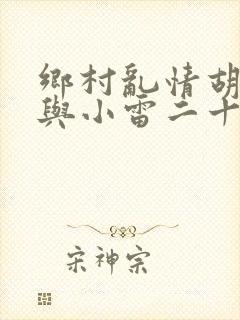 鄉村亂情胡
與小雷二十
宋神宗